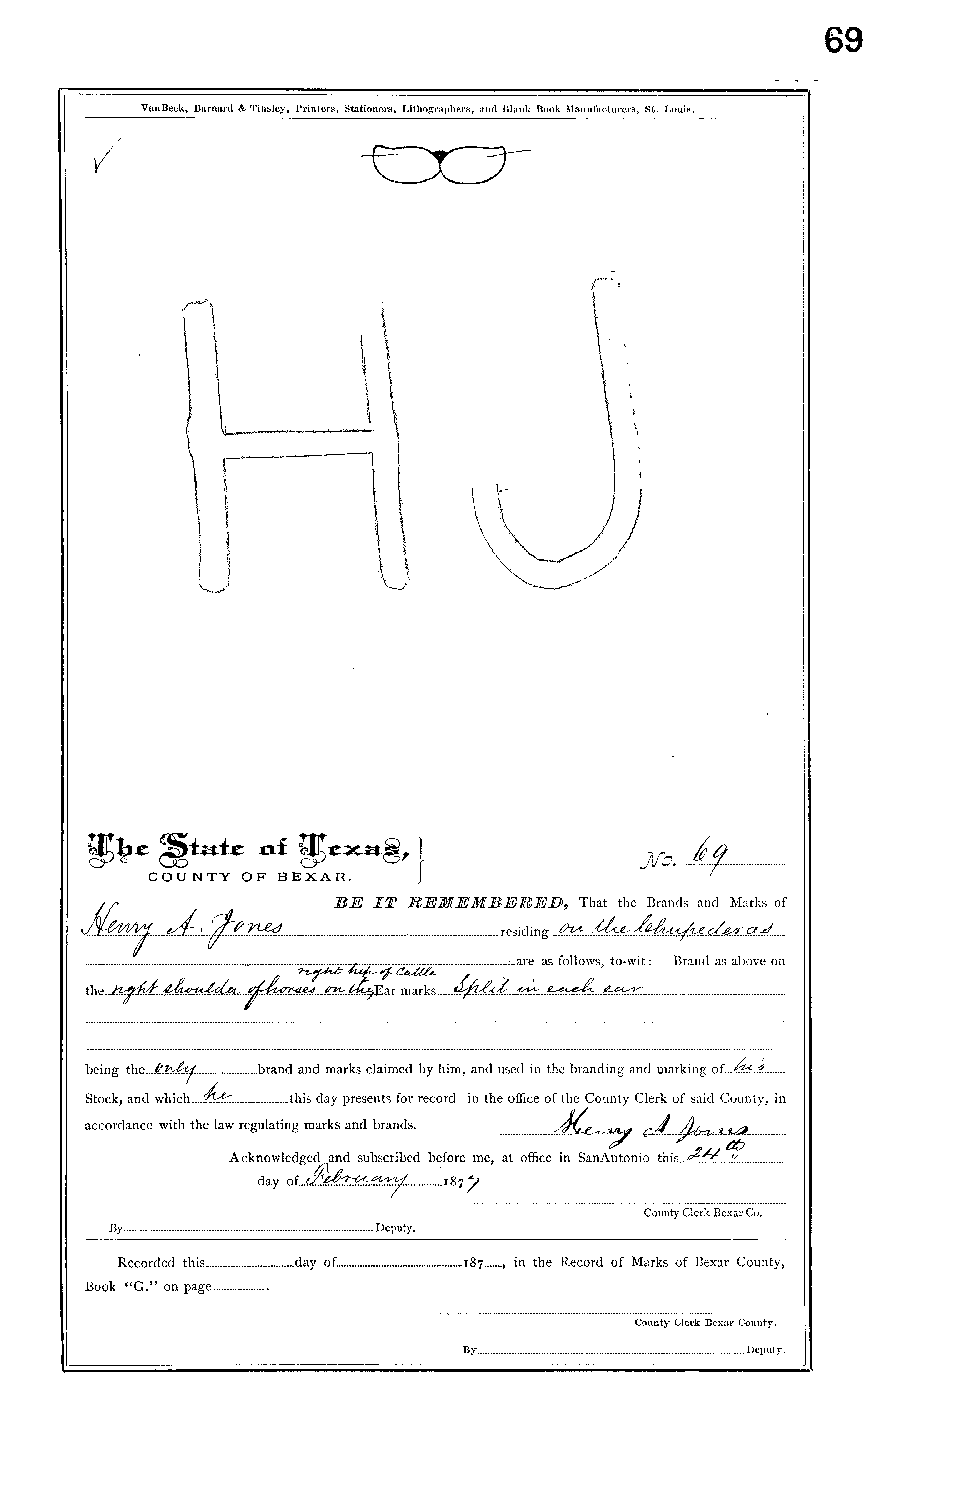 69
VanBeek, Barnard & Tinsley, Printers, Stationers, Lithographers, and Blank Book Manufacturers, St. Louis.
H J
The State of Texas,
COUNTY OF BEXAR.
No. 69
BE IT REMEMBERED, That the Brands and Marks of
Henry A. Jones residing on the Chupederas
are as follows, to-wit: Brand as above on
right hip of Cattle
the right shoulder of horses on the Ear marks Split in each ear
being the only brand and marks claimed by him, and used in the branding and marking of his
Stock, and which he this day presents for record in the office of the County Clerk of said County, in
accordance with the law regulating marks and brands. Henry A Jones
Acknowledged and subscribed before me, at office in SanAntonio this 24th
day of February 1877
County Clerk Bexar Co.
By Deputy.
Recorded this day of 187 , in the Record of Marks of Bexar County,
Book "G." on page .
County Clerk Bexar County.
By Deputy.